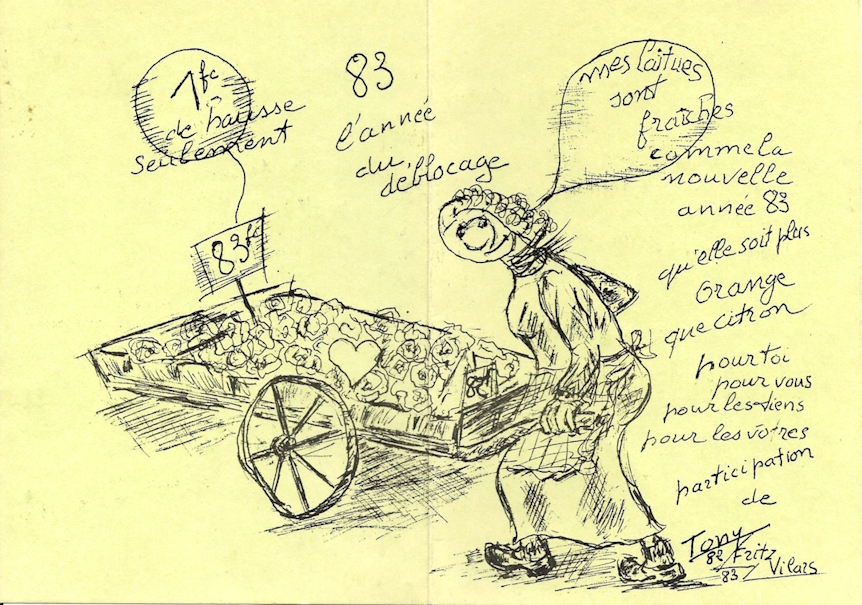 1fc
de hausse
seulement
83
l'année
du
déblocage
83fc
83
mes laitues
sont
fraîches
comme la
nouvelle
année 83
qu'elle soit plus
orange
que citron
pour toi
pour vous
pour les tiens
pour les vôtres
participation
de
Tony
82/Fritz
83/ Vilars